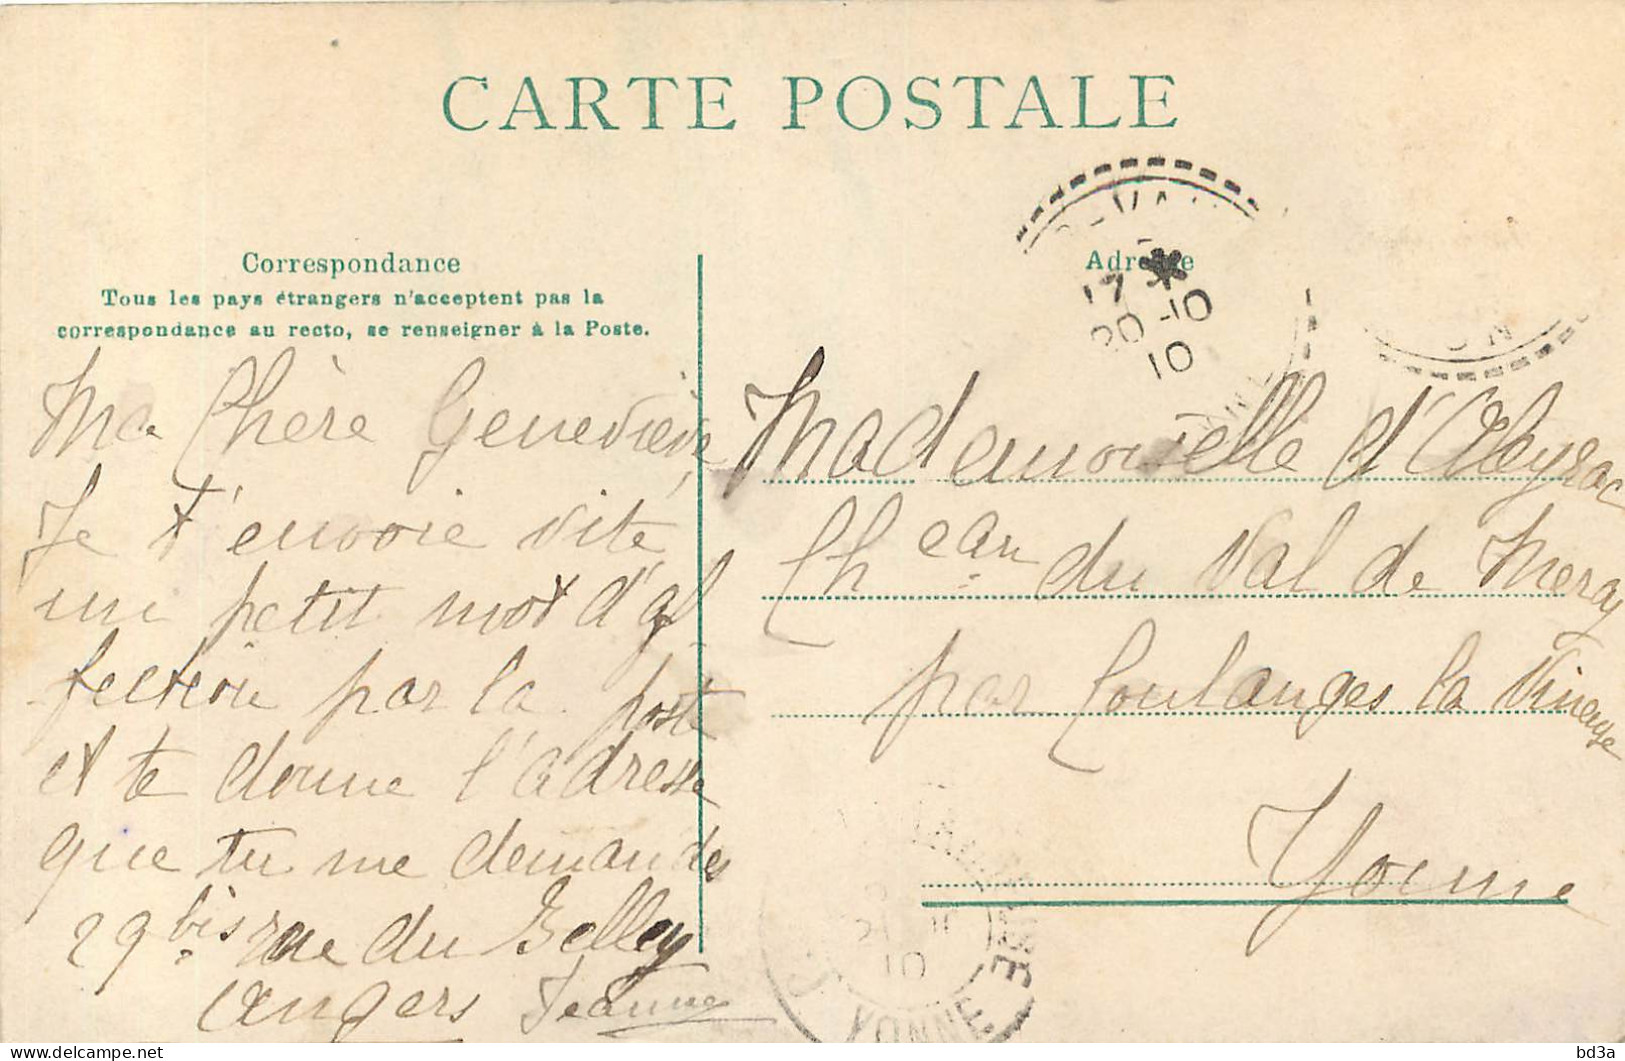 CARTE POSTALE
Correspondance
Tous les pays étrangers n'acceptent pas la
correspondance au recto, se renseigner à la Poste.
Ma Chère Geneviève,
Je t'envoie vite
un petit mot d'af
fection par la poste
et te donne l'adresse
que tu me demandes
29 bis rue du Bellay
Angers Jeanne
Adresse
17 *
20-10
10
Mademoiselle d'Aleyrac
Cheau du Val de Meray
par Coulanges la Vineuse
Yonne
10
YONNE
bd3a